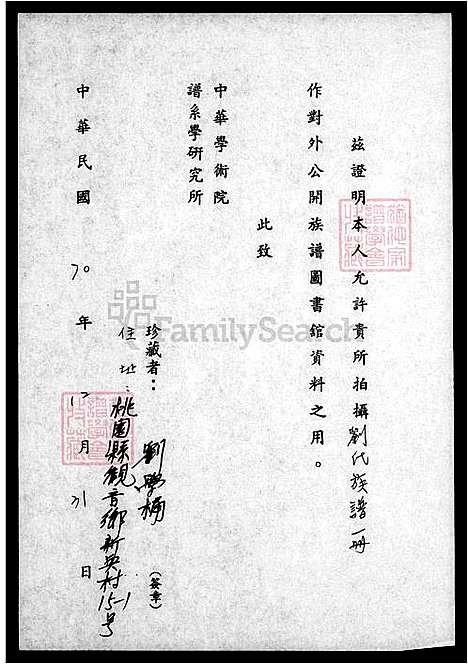 茲證明本人允許貴所拍攝劉氏族譜一冊
作對外公開族譜圖書館資料之用。
此致
中華學術院
譜系學研究所
珍藏者：劉學桶（簽章）
住址：桃園縣觀音鄉新興村15-1号
中華民國70年12月31日
FamilySearch